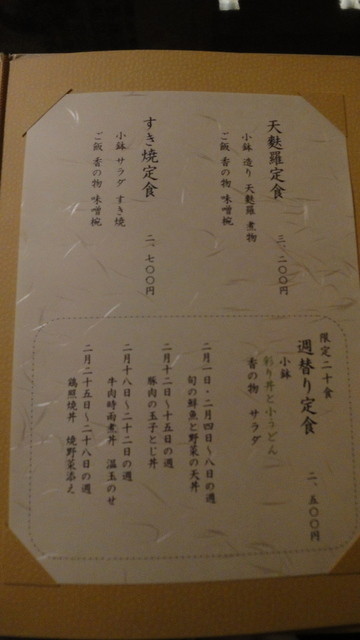 天麩羅定食
小鉢 造り 天麩羅 煮物
ご飯 香の物 味噌椀
三、二〇〇円
すき焼定食
小鉢 サラダ すき焼
ご飯 香の物 味噌椀
二、七〇〇円
限定二十食
週替り定食
小鉢
彩り丼と小うどん
香の物 サラダ
二、五〇〇円
二月一日・二月四日~八日の週
旬の鮮魚と野菜の天丼
二月十二日~十五日の週
豚肉の玉子とじ丼
二月十八日~二十二日の週
牛肉時雨煮丼 温玉のせ
二月二十五日~二十八日の週
鶏照焼丼 焼野菜添え